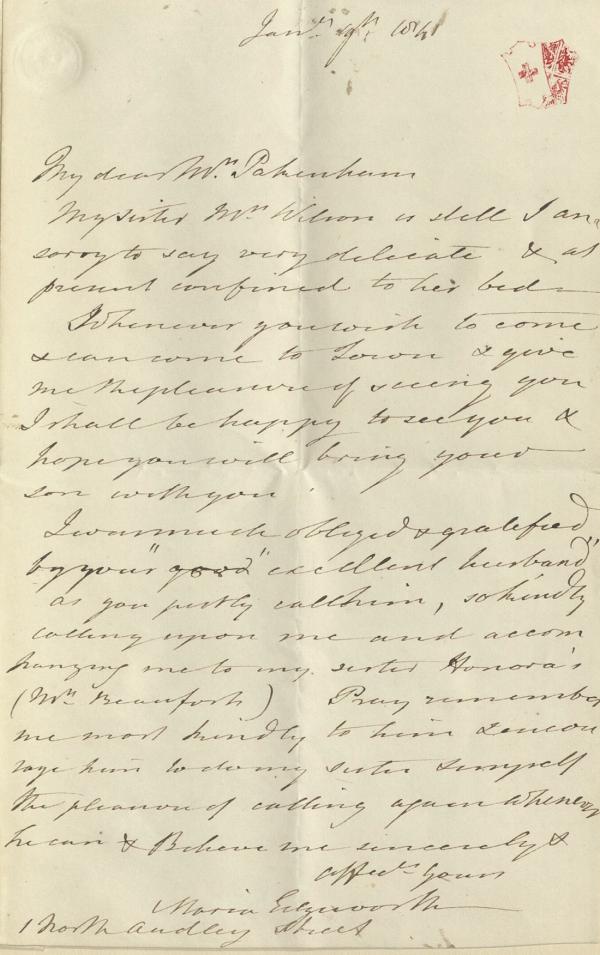 Jan.y 9th 1841
My dear Mrs. Pakenham
My sister Mrs Wilson is still I am
sorry to say very delicate & at
present confined to her bed –
Whenever you wish to come
& can come to Town & give
me the pleasure of seeing you
I shall be happy to see you &
hope you will bring your
son with you.
I was much obliged & gratified
by your "good" excellent husband"
as you justly call him, so kindly
calling upon me and accom
panying me to my sister Honora's
(Mrs Beaufort) Pray remember
me most kindly to him & encou
rage him to do my sister & myself
the pleasure of calling again whenever
he can & Believe me sincerely &
affecly yours
Maria Edgeworth
1 North Audley Street